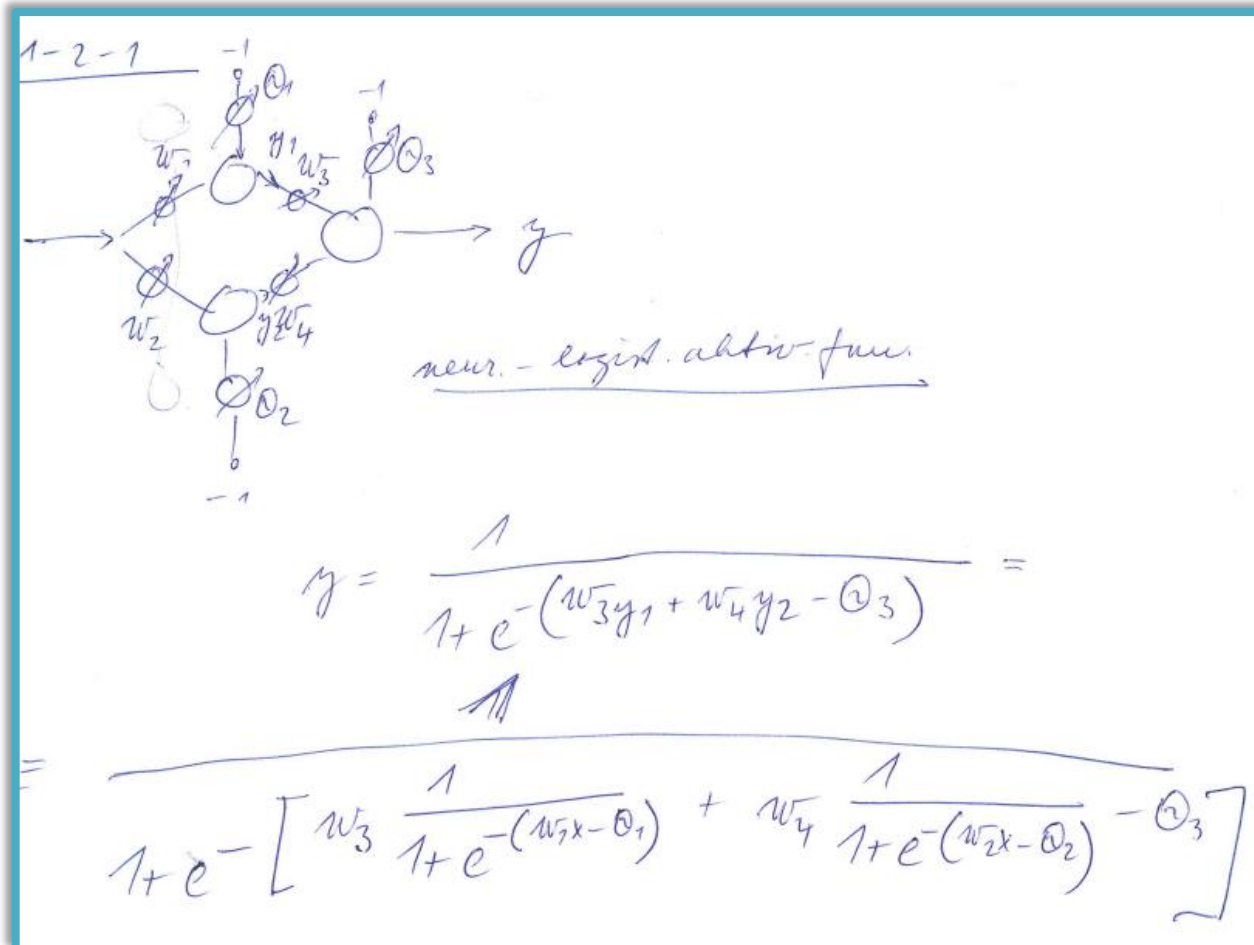 1-2-1
-1
Θ1
-1
y1
w1
w3
Θ3
y
w2
y2
w4
Θ2
-1
neur. - logist. aktiv. fun.
y = 1 / (1 + e^-(w3y1 + w4y2 - Θ3)) =
= 1 / (1 + e^-[w3 1 / (1 + e^-(w1x - Θ1)) + w4 1 / (1 + e^-(w2x - Θ2)) - Θ3])